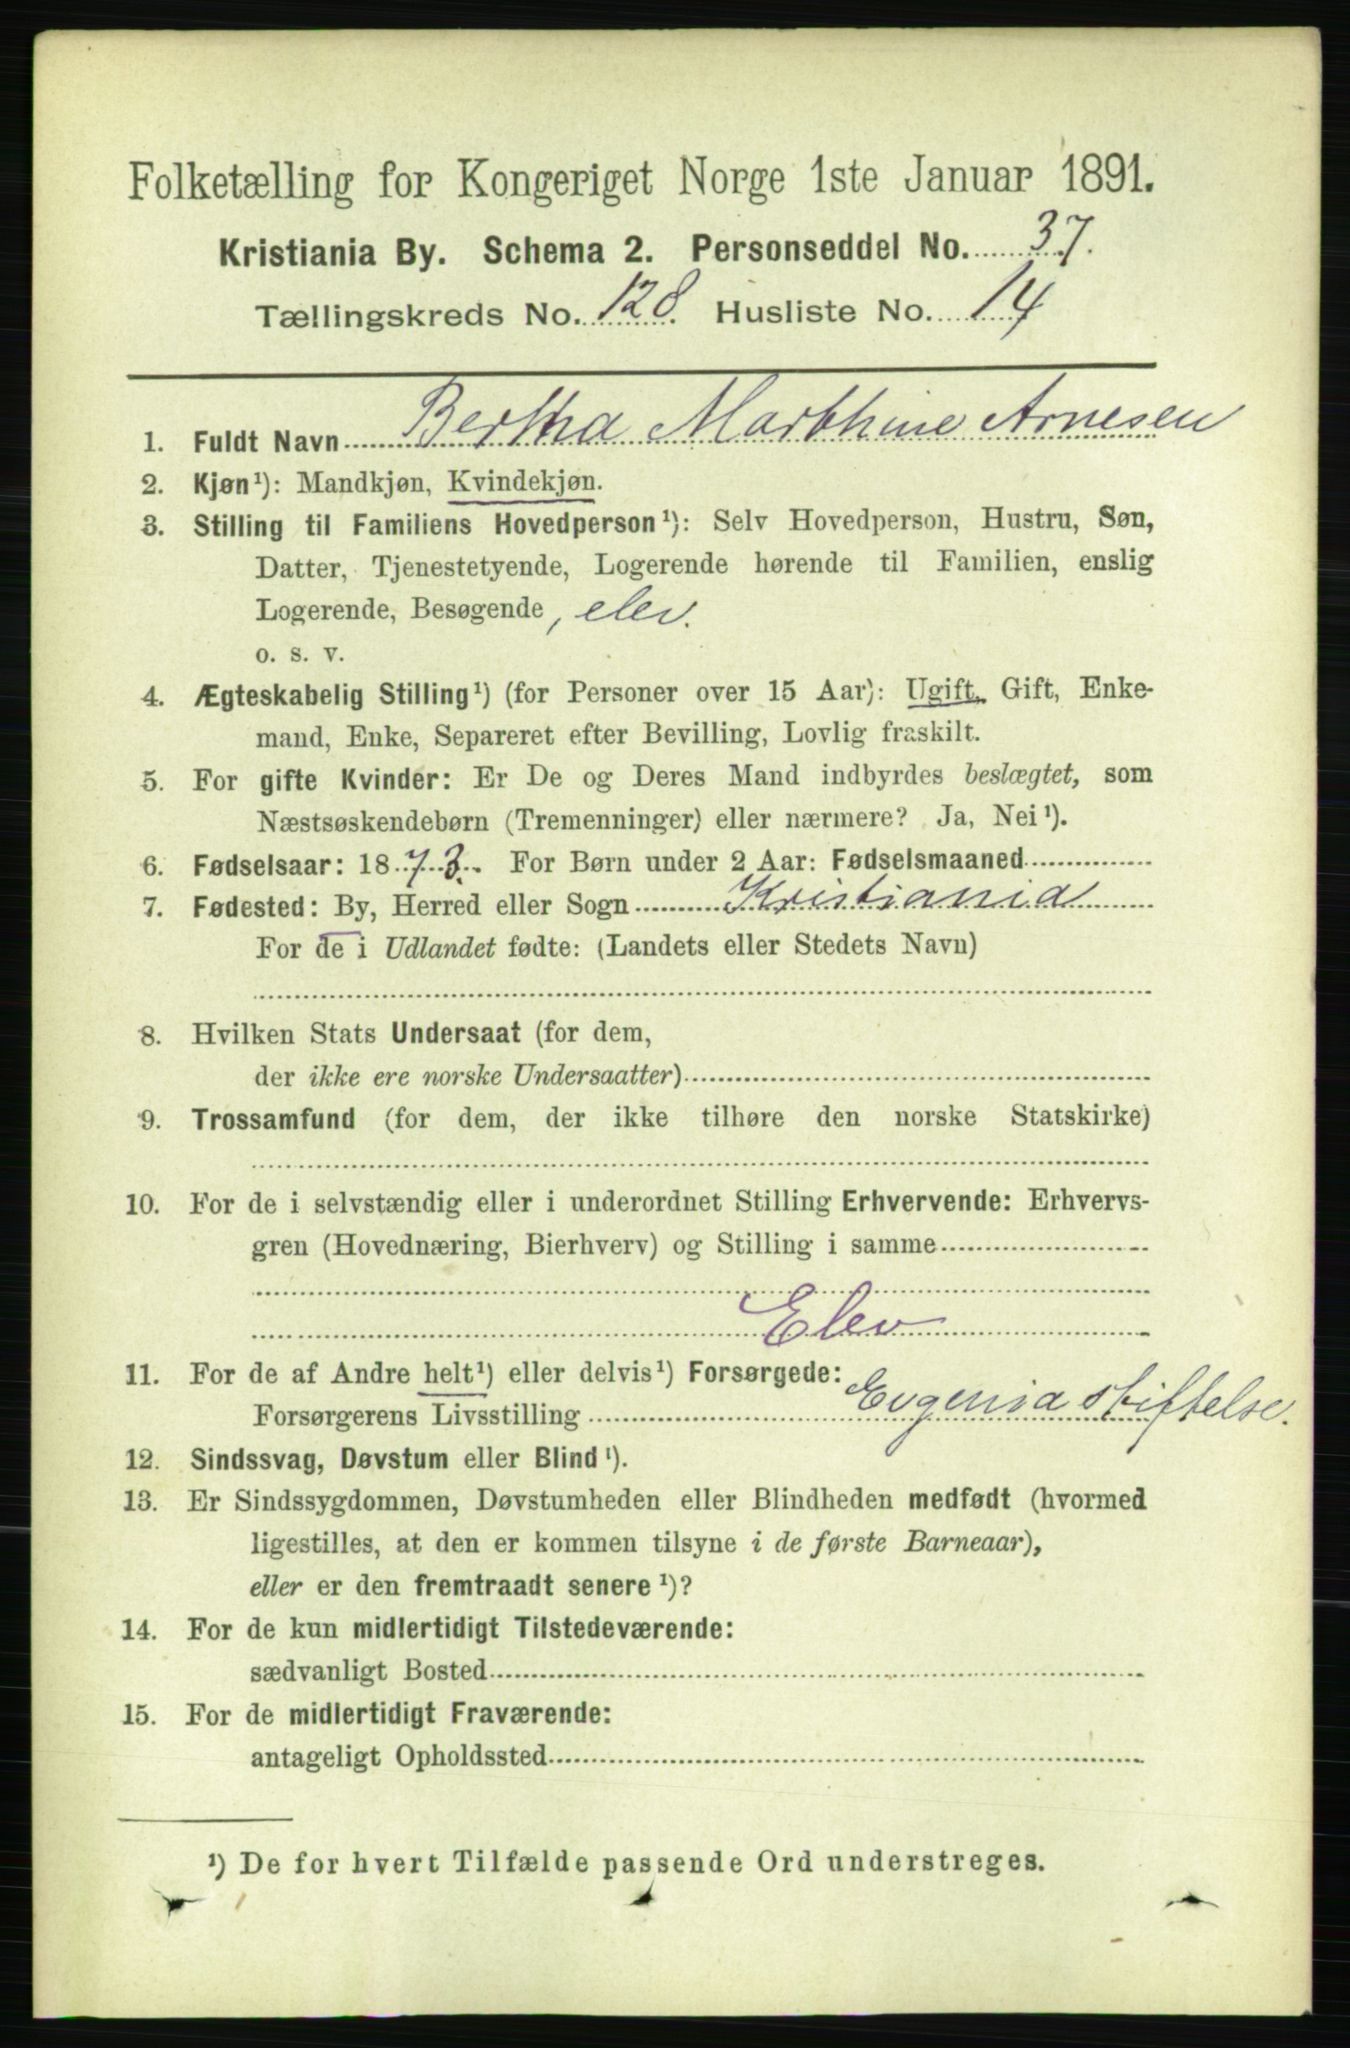 Folketælling for Kongeriget Norge 1ste Januar 1891.
Kristiania By. Schema 2. Personseddel No. 37.
Tællingskreds No. 128. Husliste No. 14
1. Fuldt Navn Bertha Marthine Arnesen
2. Kjøn¹): Mandkjøn, Kvindekjøn.
3. Stilling til Familiens Hovedperson¹): Selv Hovedperson, Hustru, Søn,
Datter, Tjenestetyende, Logerende hørende til Familien, enslig
Logerende, Besøgende, elev.
o. s. v.
4. Ægteskabelig Stilling¹) (for Personer over 15 Aar): Ugift, Gift, Enke-
mand, Enke, Separeret efter Bevilling, Lovlig fraskilt.
5. For gifte Kvinder: Er De og Deres Mand indbyrdes beslægtet, som
Næstsøskendebørn (Tremenninger) eller nærmere? Ja, Nei¹).
6. Fødselsaar: 1873. For Børn under 2 Aar: Fødselsmaaned
7. Fødested: By, Herred eller Sogn Kristiania
For de i Udlandet fødte: (Landets eller Stedets Navn)
8. Hvilken Stats Undersaat (for dem,
der ikke ere norske Undersaatter)
9. Trossamfund (for dem, der ikke tilhøre den norske Statskirke)
10. For de i selvstændig eller i underordnet Stilling Erhvervende: Erhvervs-
gren (Hovednæring, Bierhverv) og Stilling i samme
Elev
11. For de af Andre helt¹) eller delvis¹) Forsørgede:
Forsørgerens Livsstilling Eugenia stiftelse.
12. Sindssvag, Døvstum eller Blind¹).
13. Er Sindssygdommen, Døvstumheden eller Blindheden medfødt (hvormed
ligestilles, at den er kommen tilsyne i de første Barneaar),
eller er den fremtraadt senere¹)?
14. For de kun midlertidigt Tilstedeværende:
sædvanligt Bosted
15. For de midlertidigt Fraværende:
antageligt Opholdssted
¹) De for hvert Tilfælde passende Ord understreges.